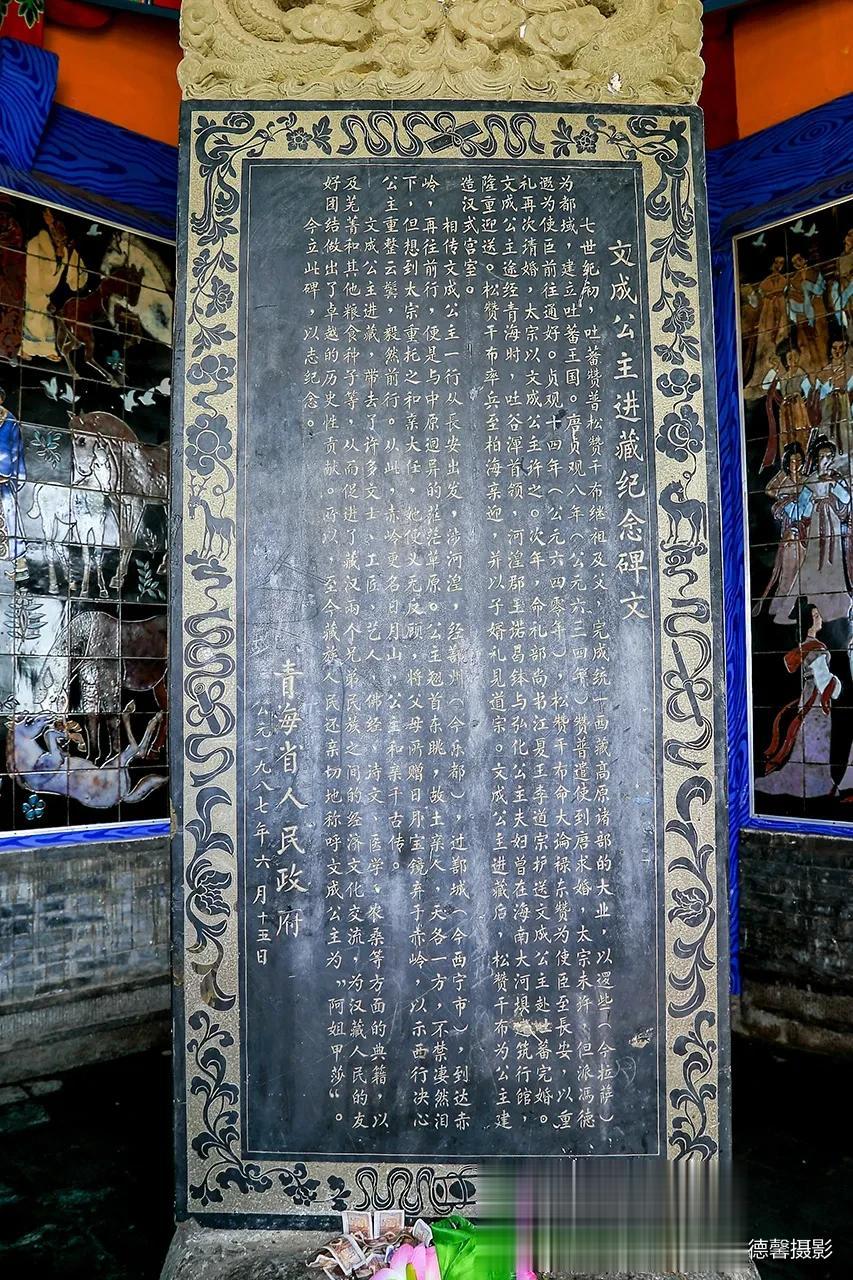 文成公主进藏纪念碑文
七世纪初，吐蕃赞普松赞干布继祖及父，完成统一西藏高原诸部的大业，以逻些（今拉萨）
为都域，建立吐蕃王国。唐贞观八年（公元六三四年）赞普遣使到唐求婚，太宗未许，但派冯德
遐为使臣前往通好。贞观十四年（公元六四零年），松赞干布命大论禄东赞为使臣至長安，以重
礼再次清婚，太宗以文成公主许之。次年，命礼部尚书江夏王李道宗护送文成公主赴吐蕃完婚。
文成公主途经青海时，吐谷渾首领，河湟郡王诺曷钵与弘化公主夫妇曾在海南大河坝建筑行館，
隆重迎送。松赞干布率兵至柏海亲迎，并以子婿礼见道宗。文成公主进藏后，松赞干布为公主建
造汉式宫室。
相传文成公主一行从長安出发，涉河湟，经鄯州（今乐都），过鄯城（今西宁市），到达赤
岭，再往前行，便是与中原迥异的茫茫草原。公主翘首东眺，故土亲人，天各一方，不禁凄然泪
下，但想到太宗重托之和亲大任，她便义无反顾，将父母所赠日月宝镜弃于赤岭，以示西行决心
公主重整云鬓，毅然前行。从此，赤岭更名日月山，公主和亲千古传。
文成公主进藏，带去了许多文士、工匠、艺人、佛经、诗文、医学、农桑等方面的典籍，以
及芜菁和其他粮食种子等，从而促进了藏汉兩个兄弟民族之间的经济文化交流，为汉藏人民的友
好团结做出了卓越的历史性贡献。所以，至今藏族人民还亲切地称呼文成公主为“阿姐甲莎”。
今立此碑，以志纪念。
青海省人民政府
公元一九八七年六月十五日
德馨摄影